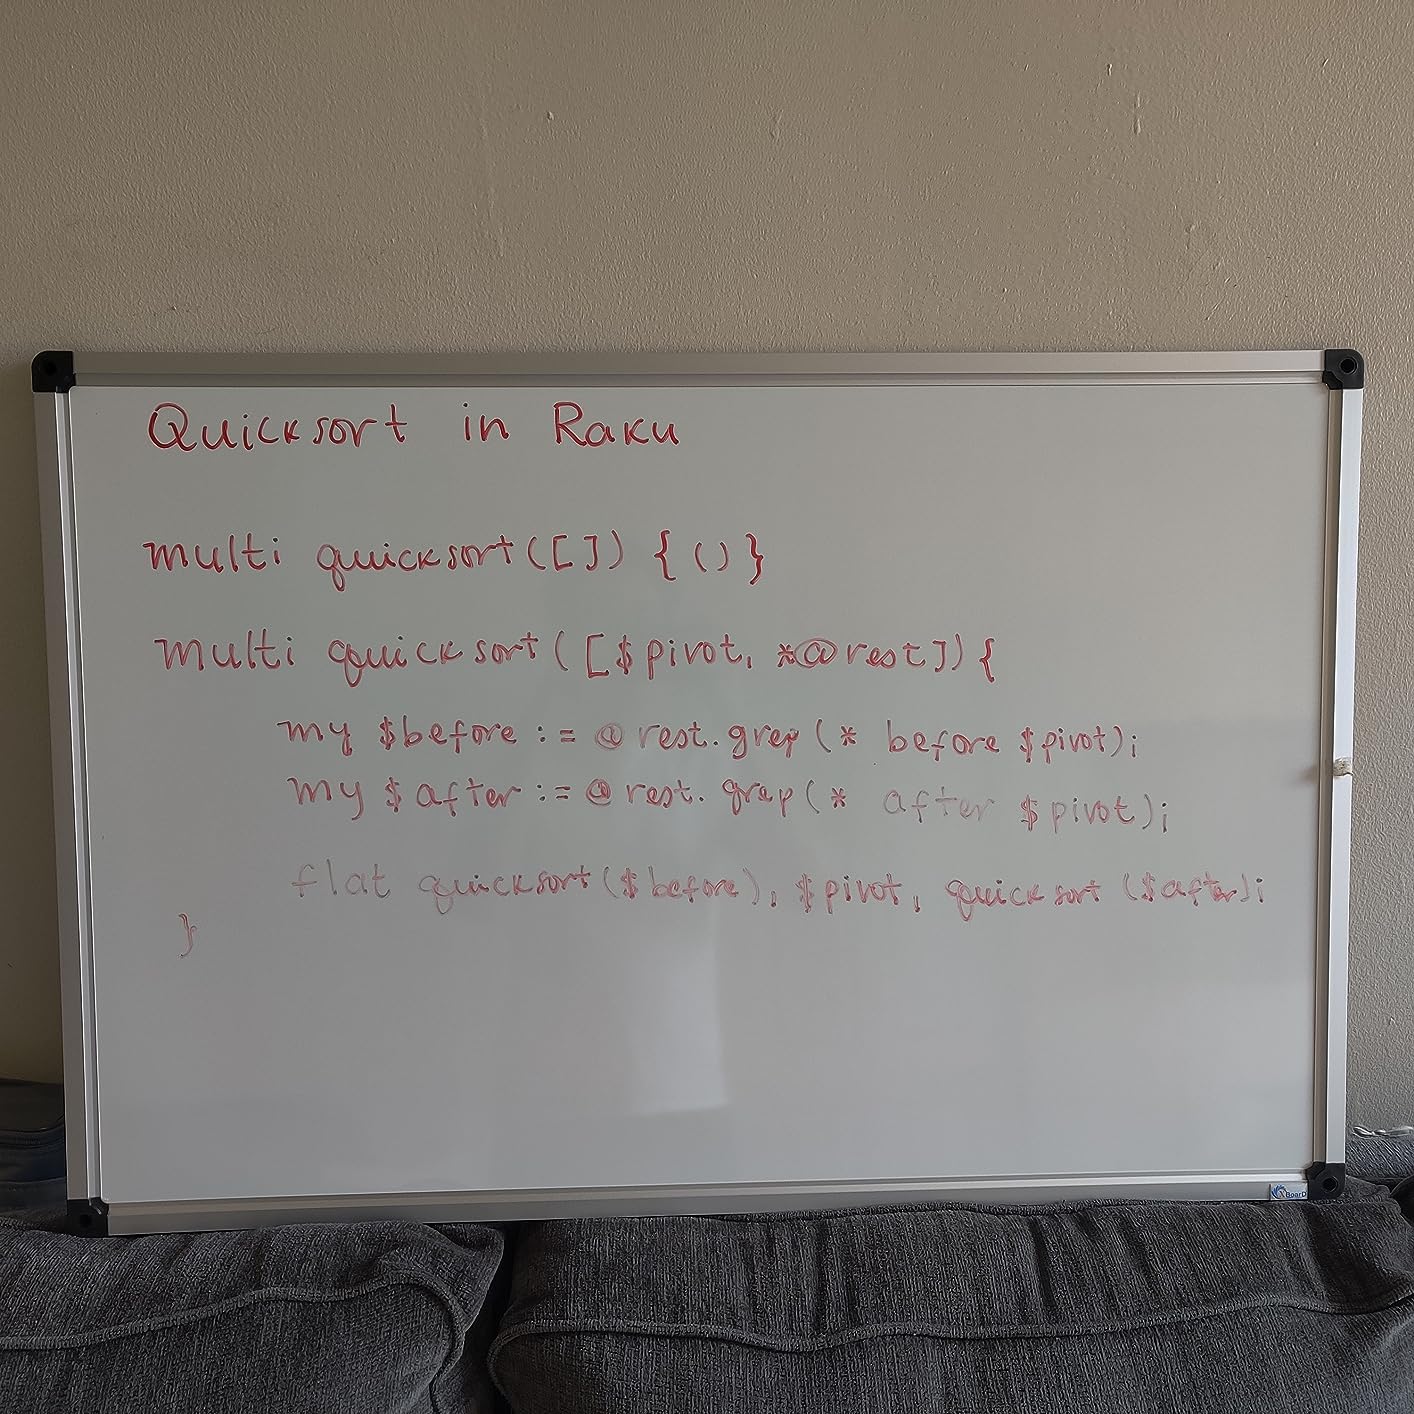 Quicksort in Raku
multi quicksort([]) {()}
multi quicksort([$pivot, *@rest]){
my $before := @rest.grep(* before $pivot);
my $after := @rest.grep(* after $pivot);
flat quicksort($before), $pivot, quicksort($after);
}
BoarD